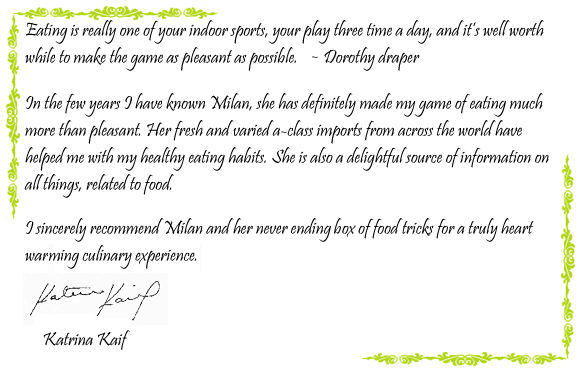 Eating is really one of your indoor sports, your play three time a day, and it's well worth
while to make the game as pleasant as possible. ~ Dorothy draper
In the few years I have known Milan, she has definitely made my game of eating much
more than pleasant. Her fresh and varied a-class imports from across the world have
helped me with my healthy eating habits. She is also a delightful source of information on
all things, related to food.
I sincerely recommend Milan and her never ending box of food tricks for a truly heart
warming culinary experience.
Katrina Kaif
Katrina Kaif